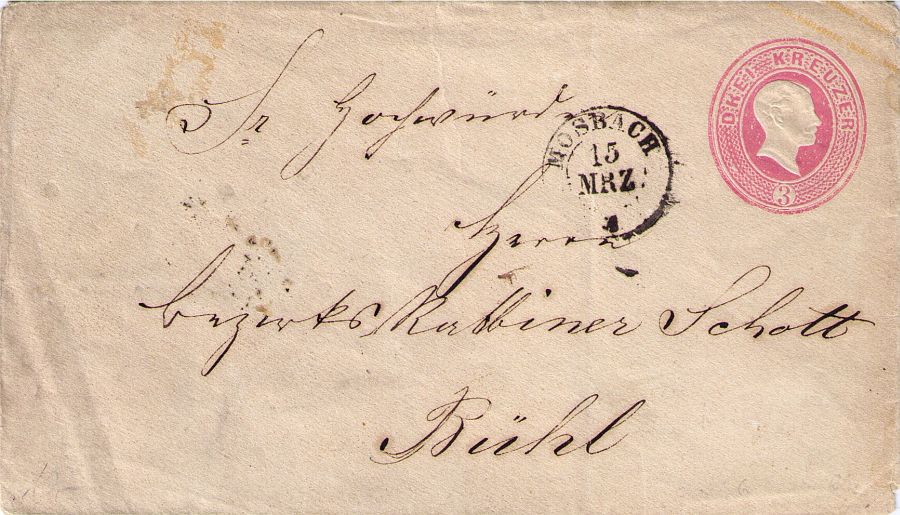 DREI KREUZER
3
MOSBACH
15
MRZ.
Sr Hochwürden
Herrn
Bezirks Rabbiner Schott
Bühl